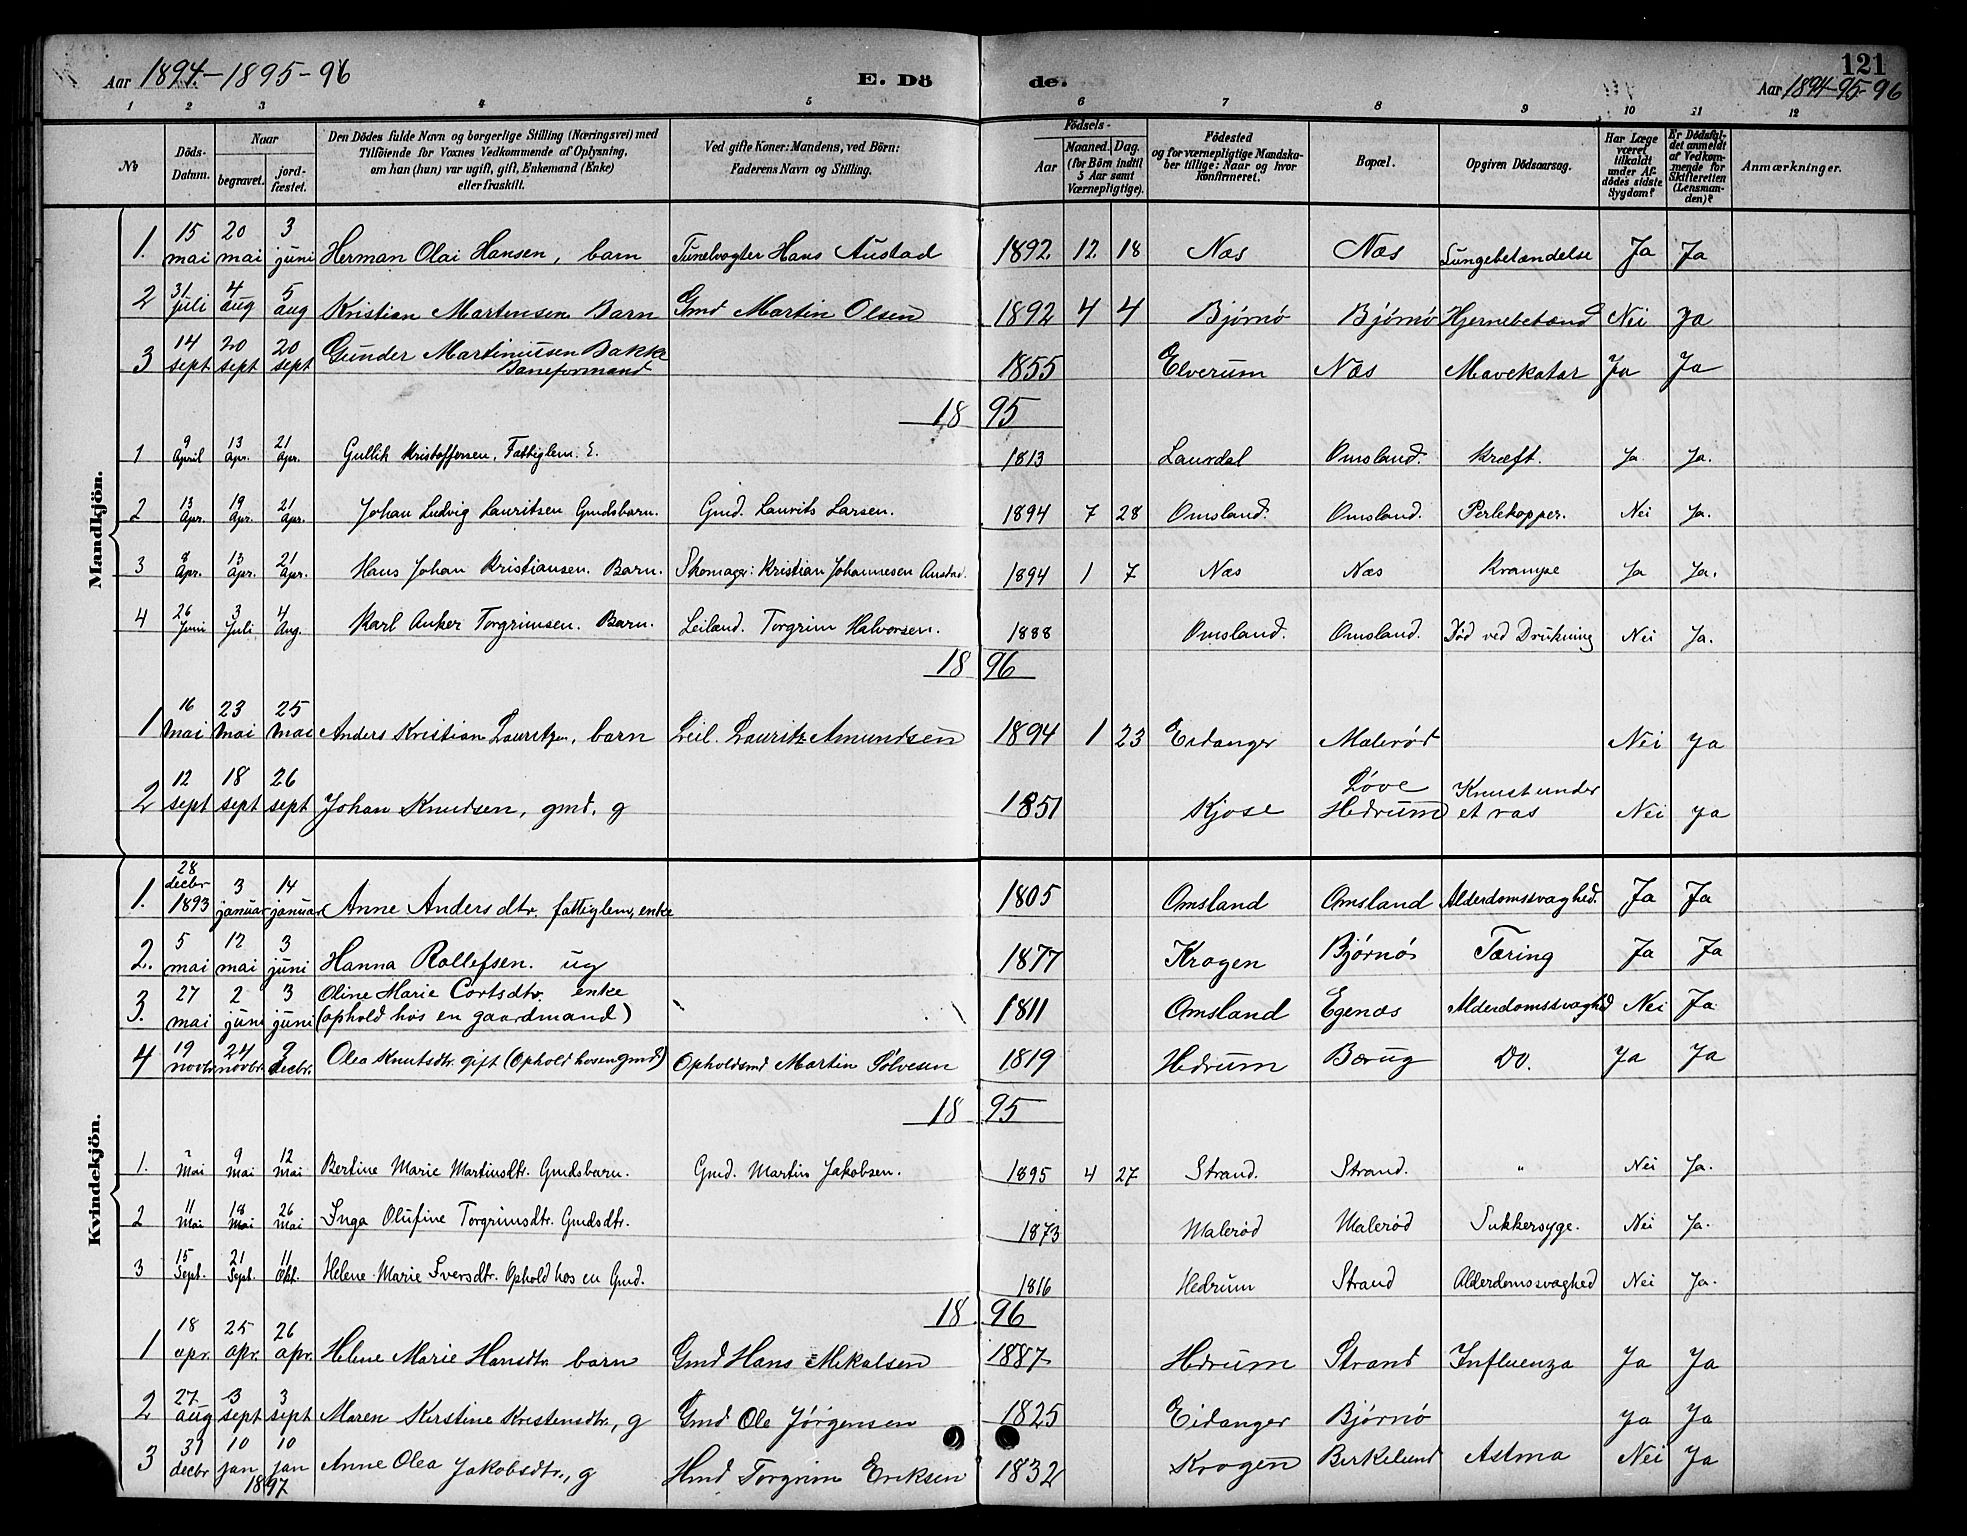 Aar 1894-1895-96
E. Dö
de.
121
Aar 1894-95-96
1 2 3 4 5 6 7 8 9 10 11 12
No
Döds-Datum.
Naar
begravet.
jord-fæstet.
Den Dödes fulde Navn og borgerlige Stilling (Næringsvei) med
Tilföiende for Voxnes Vedkommende af Oplysning,
om han (hun) var ugift, gift, Enkemand (Enke)
eller fraskilt.
Ved gifte Koner: Mandens, ved Börn:
Faderens Navn og Stilling.
Födsels-
Aar Maaned. Dag.
(for Börn indtil
5 Aar samt
Værnepligtige).
Födested
og for værnepligtige Mandska-
ber tillige: Naar og hvor
Konfirmeret.
Bopæl.
Opgiven Dödsaarsag.
Har Læge
været
tilkaldt
under Af-
dödes sidste
Sygdom?
Er Dödsfal-
det anmeldt
af Vedkom-
mende for
Skifteretten
(Lensman-
den)?
Anmærkninger.
Mandkjön.
1. 15 mai 20 mai 3 juni Herman Olai Hansen, barn Tunelvogter Hans Austad 1892 12 18 Næs Næs Lungebetændelse Ja Ja
2 31 juli 4 aug 5 aug Kristian Martensen Barn Gmd Martin Olsen 1892 4 4 Bjørnø Bjørnø Hjernebetænd Nei Ja
3 14 sept 20 sept 20 sept Gunder Martiniusen Bakke
Baneformand 1855 Elverum Næs Mavekatar Ja Ja
1895
1 9 April 13 Apr. 21 Apr. Gullik Kristoffersen, Fattiglem. E. 1813 Laurdal Omsland. Kræft. Ja. Ja.
2 13 Apr. 19 Apr. 21 Apr. Johan Ludvig Lauritsen Gmdsbarn. Gmd. Laurits Larsen. 1894 7 28 Omsland. Omsland. Perlekopper. Nei Ja.
3 8 Apr. 13 Apr. 21 Apr. Hans Johan Kristiansen. Barn. Skomager: Kristian Johannesen Austad. 1894 1 7 Næs Næs Krampe Ja Ja.
4 26 Juni 3 Juli 4 Aug. Karl Anker Torgrimsen. Barn. Leilænd. Torgrim Halvorsen. 1888 Omsland. Omsland. Død ved Drukning Nei Ja.
1896
1 16 Mai 23 Mai 25 mai Anders Kristian Lauritzen, barn Leil. Lauritz Amundsen 1894 1 23 Eidanger Malerød Nei Ja
2 12 sept 18 sept 26 sept Johan Knudsen, gmd, g 1851 Kjose Løve
Hedrum Knust under
et ras Nei Ja
Kvindekjön.
1. 28 decbr 1893 3 januar 14 januar Anne Andersdtr. fattiglem, enke 1805 Omsland Omsland Alderdomssvaghed. Ja Ja
2. 5 mai 12 mai 3 juni Hanna Rollefsen. ug 1877 Krogen Bjørnøs Tæring Ja Ja
3. 27 mai 2 juni 3 juni Oline Marie Cortsdtr. enke
(ophold hos en gaardmand) 1811 Omsland Egenæs Alderdomssvaghed Nei Ja
4 19 novbr 24 novbr. 9 decbr. Olea Knutsdtr. gift (Ophold hos en gmd.) Opholdsmd Martin Sølvesen 1819 Hedrum Børug Do. Ja Ja
1895
1. Mai 9 Mai 12 Mai Bertine Marie Martinsdtr. Gmdsbarn. Gmd. Martin Jakobsen. 1895 4 27 Strand. Strand. " Nei Ja.
2 11 Mai 18 Mai 26 Mai Inga Olufine Torgrimsdtr. Gmdsdtr. 1873 Malerød Malerød Sukkersyge. Nei Ja.
3 15 Sept. 21 Sept. 11 Okt. Helene Marie Iversdtr. Ophold hos en Gmd. 1816 Hedrum Strand Alderdomssvaghed Nei Ja.
1896
1 18 apr. 25 apr. 26 apr. Helene Marie Hansdtr. barn Gmd Hans Mikalsen 1887 Hedrum Strand Influenza Ja Ja
2 27 aug 3 sept 3 sept Maren Kirstine Kristensdtr., g Gmd Ole Jørgensen 1825 Eidanger Bjørnø Ja Ja
3 31 decbr 10 jan 10 jan 1897 Anne Olea Jakobsdtr., g Hmd Torgrim Eriksen 1832 Krogen Berkelund Astma Nei Ja